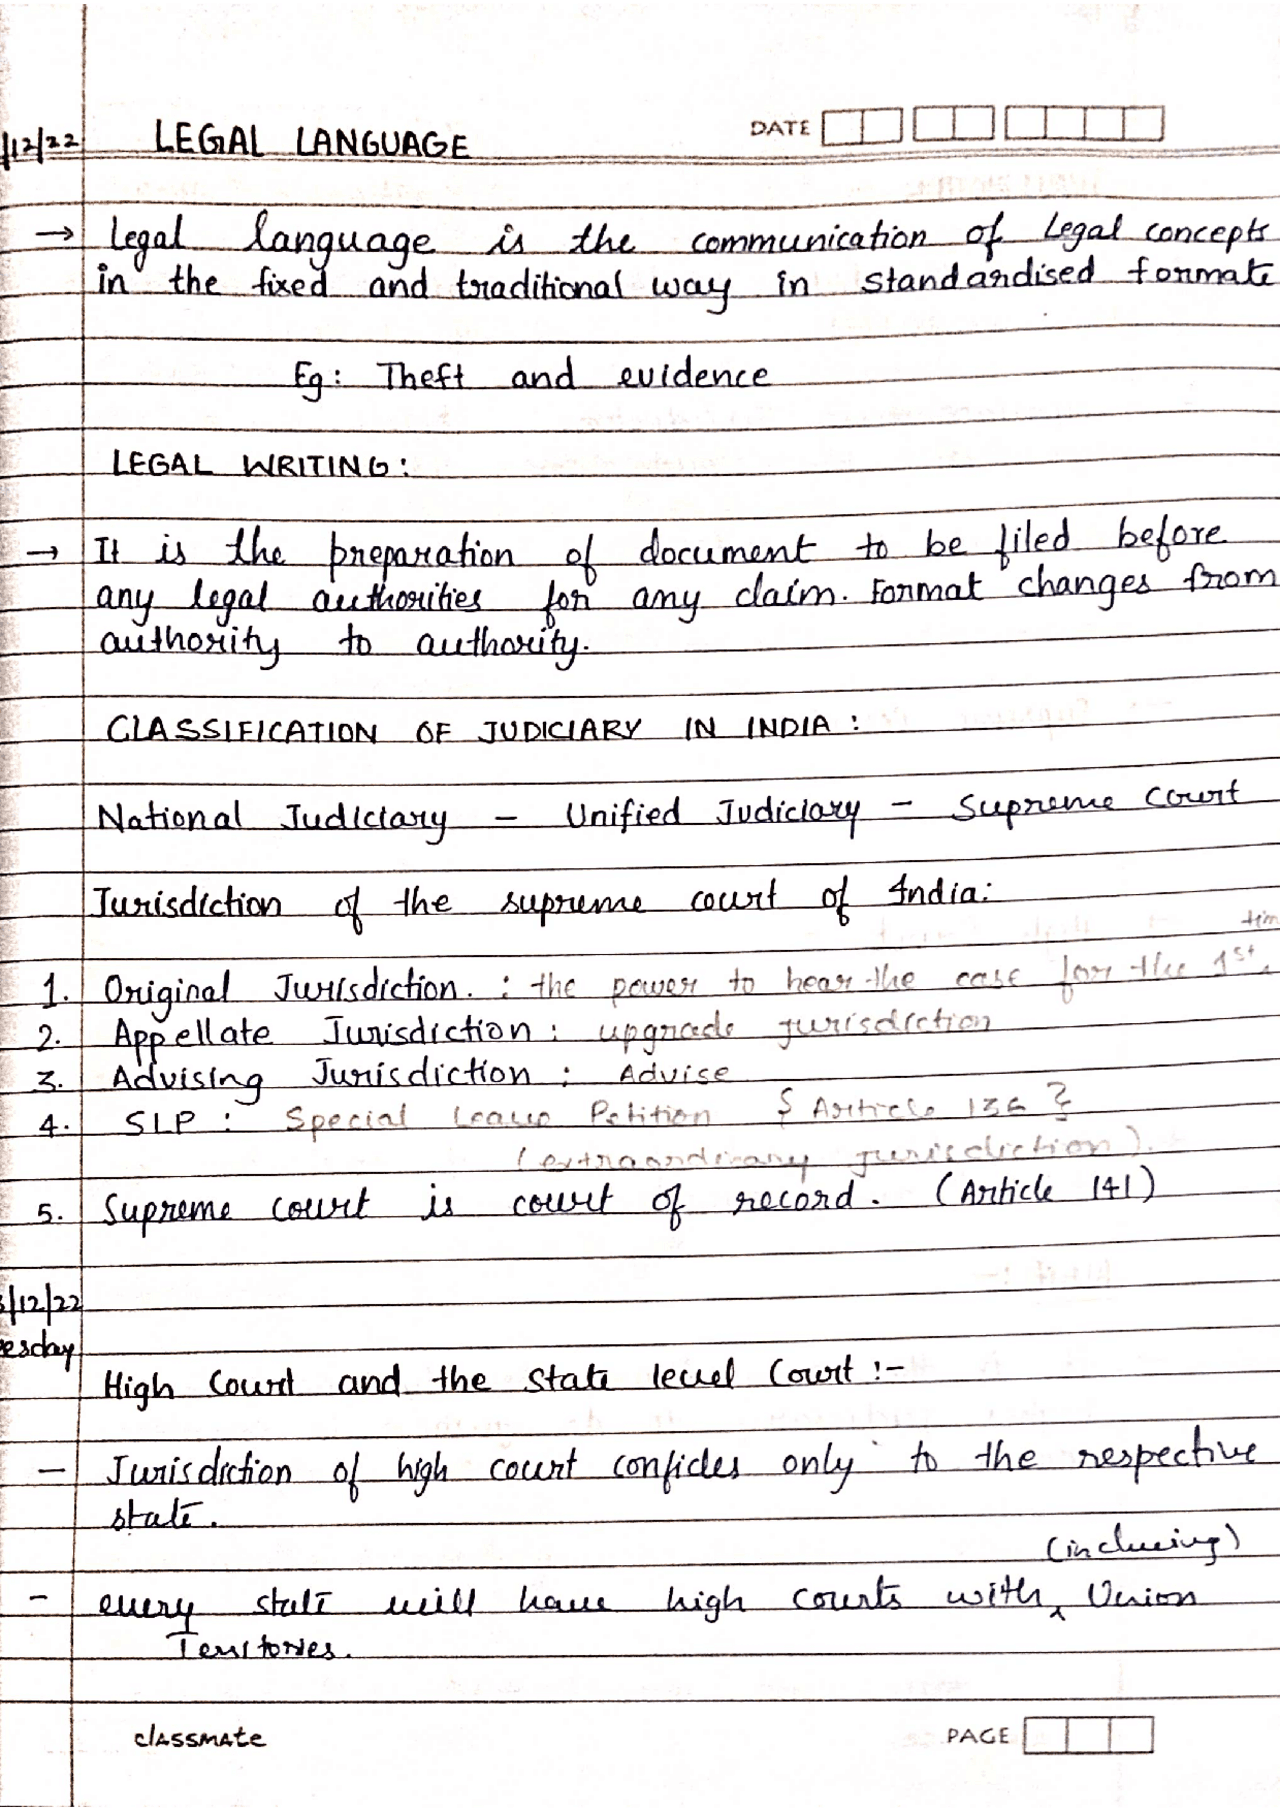 /12/22 LEGAL LANGUAGE DATE
→ Legal language is the communication of Legal concepts
in the fixed and traditional way in standardised formate
Eg: Theft and evidence
LEGAL WRITING:
→ It is the preparation of document to be filed before
any legal authorities for any claim. Format changes from
authority to authority.
CLASSIFICATION OF JUDICIARY IN INDIA:
National Judiciary - Unified Judiciary - Supreme Court
Jurisdiction of the supreme court of India:
tim
1. Original Jurisdiction. : the power to hear the case for the 1st
2. Appellate Jurisdiction: upgrade jurisdiction
3. Advising Jurisdiction: Advise
4. SLP: Special Leave Petition { Article 136 }
(extraordinary jurisdiction).
5. Supreme court is court of record. (Article 141)
/12/22
esday
High Court and the state level Court :-
- Jurisdiction of high court confides only to the respective
state.
(incluing)
- every state will have high courts with ^ Union
Territories.
classmate PAGE